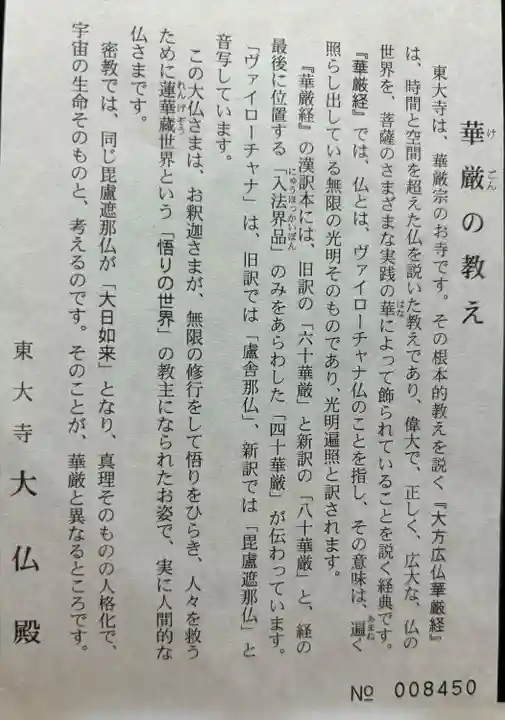 華厳の教え
けごん
東大寺は、華厳宗のお寺です。その根本的教えを説く『大方広仏華厳経』
は、時間と空間を超えた仏を説いた教えであり、偉大で、正しく、広大な、仏の
世界を、菩薩のさまざまな実践の華によって飾られていることを説く経典です。
はな
『華厳経』では、仏とは、ヴァイローチャナ仏のことを指し、その意味は、遍く
あまね
照らし出している無限の光明そのものであり、光明遍照と訳されます。
『華厳経』の漢訳本には、旧訳の「六十華厳」と新訳の「八十華厳」と、経の
最後に位置する「入法界品」のみをあらわした「四十華厳」が伝わっています。
にゅうほっかいぼん
「ヴァイローチャナ」は、旧訳では「盧舎那仏」、新訳では「毘盧遮那仏」と
音写しています。
この大仏さまは、お釈迦さまが、無限の修行をして悟りをひらき、人々を救う
ために蓮華蔵世界という「悟りの世界」の教主になられたお姿で、実に人間的な
れんげぞう
仏さまです。
密教では、同じ毘盧遮那仏が「大日如来」となり、真理そのものの人格化で、
宇宙の生命そのものと、考えるのです。そのことが、華厳と異なるところです。
東大寺大仏殿
№ 008450